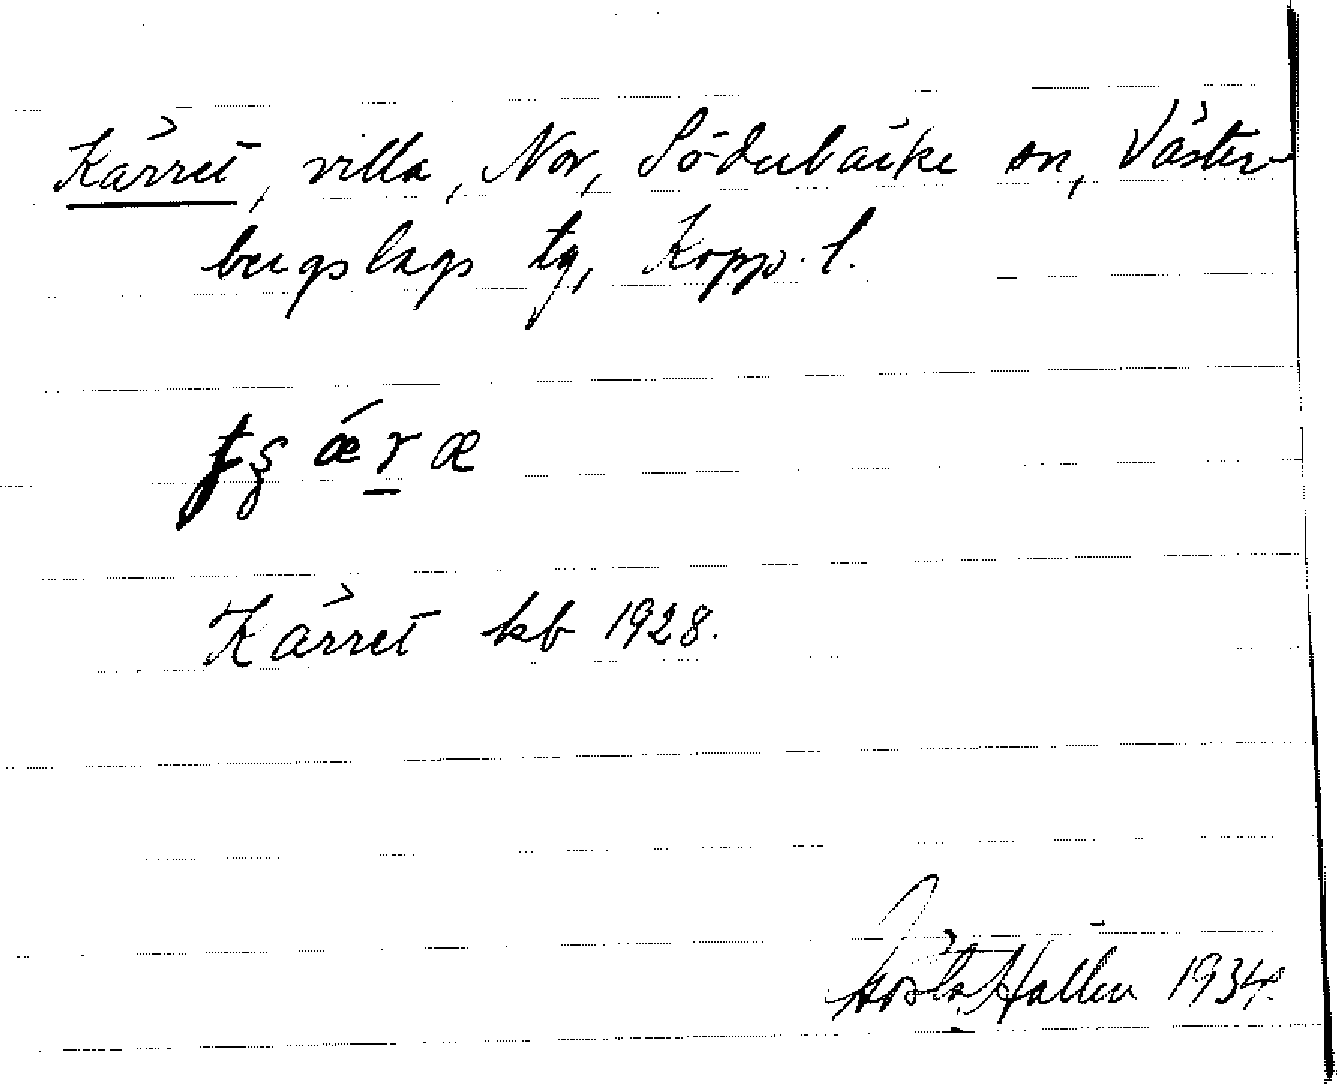 Kärret, villa, Nor, Söderbärke sn, Väster-
bergslags tg, Kopp. l.
Kärret kb 1928.
Gösta Hallén 1934.